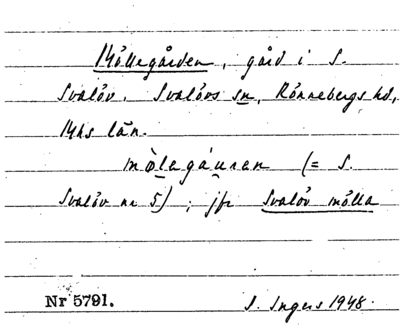 Möllegården, gård i S.
Svalöv. Svalövs sn, Rönnebergs hd,
Mhs län.
mòlegáuren (= S.
Svalöv nr 5); jfr Svalöv mölla
Nr 5791.
I. Ingers 1948.